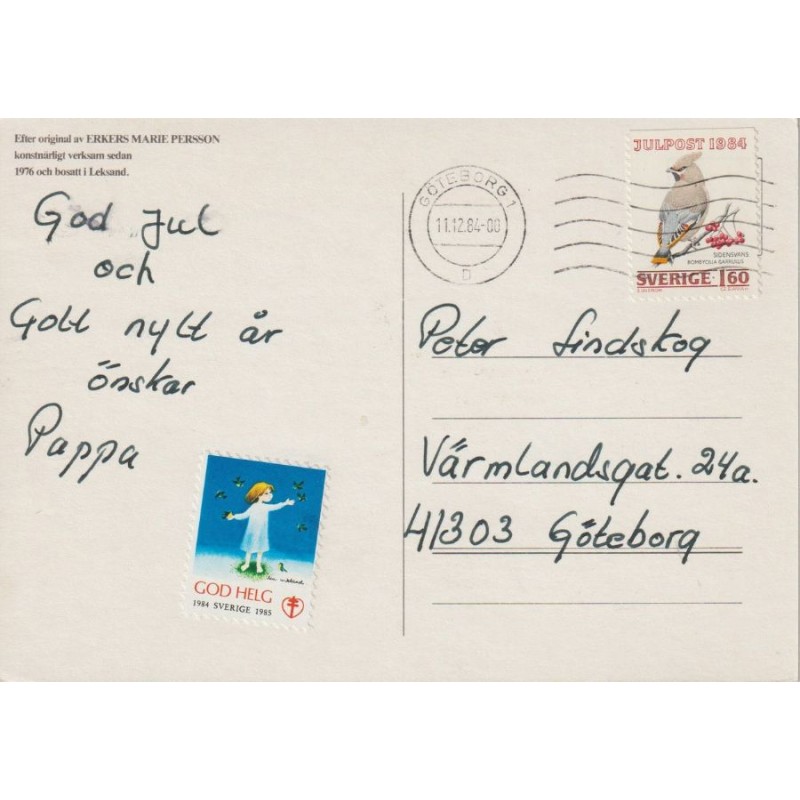 Efter original av ERKERS MARIE PERSSON
konstnärligt verksam sedan
1976 och bosatt i Leksand.
God Jul
och
Gott nytt år
önskar
Pappa
GOD HELG
1984 SVERIGE 1985
GÖTEBORG 1
11.12.84-00
D
JULPOST 1984
SIDENSVANS
BOMBYCILLA GARRULUS
SVERIGE 1.60
Peter Lindskog
Värmlandsgat. 24a.
41303 Göteborg